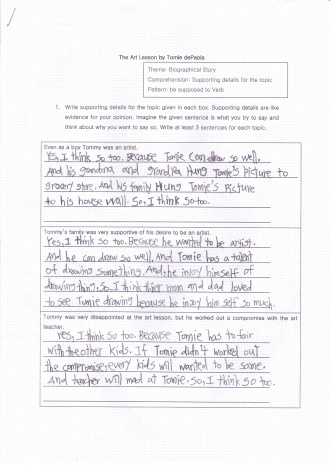 The Art Lesson by Tomie dePaola
Theme: Biographical Story
Comprehension: Supporting details for the topic
Pattern: be supposed to Verb
1. Write supporting details for the topic given in each box. Supporting details are like
evidence for your opinion. Imagine the given sentence is what you try to say and
think about why you want to say so. Write at least 3 sentences for each topic.
Even as a boy Tommy was an artist.
Yes, I think so too. Because Tomie can draw so well.
And his grandma and grandpa Hung Tomie's picture to
grocery store. And his family Hung Tomie's Picture
to his house Wall. So, I think so too.
Tommy's family was very supportive of his desire to be an artist.
Yes, I think so too. Because he wanted to be artist.
And he can draw so well. And Tomie has a talent
of drawing something. And, he injoy himself of
drawing thing. So I think thier mom and dad loved
to see Tomie drawing because he injoy him self so much.
Tommy was very disappointed at the art lesson, but he worked out a compromise with the art
teacher.
Yes, I think so too. Because Tomie has to fair
with the other kids. If Tomie didn't worked out
the compromise, every kids will wanted to be same.
And teacher will mad at Tomie. So, I think so too.